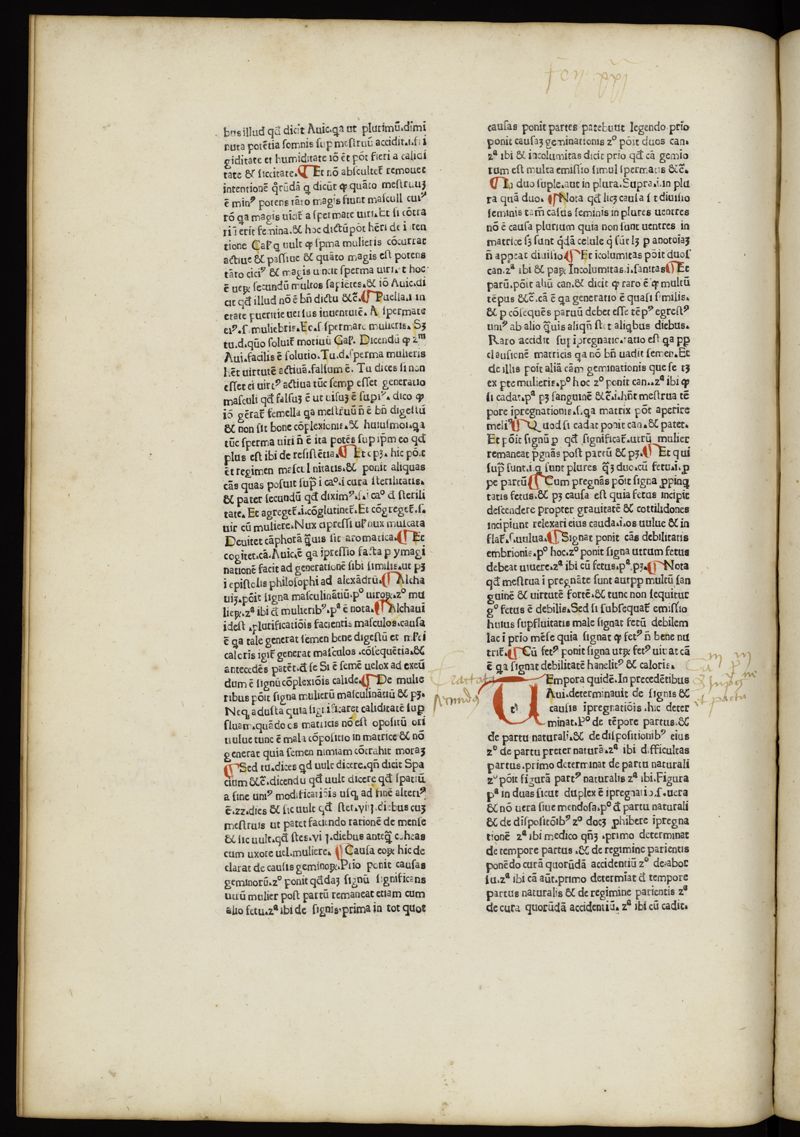 bus illud qđ dicit Auic. qa ut plurimū. dimi
nuta potētia somnis sup mēstruū accidit. i. fri
giditate et humiditate iō ēt pōt fieri a calidi
tate & siccitate. Et nō abscultet remouet
intentionē
ē min⁹ potens tāto magis fiunt masculi
tō qa magis uicit a spermate uiri. Et si cōtra
erit femina. & hoc dictū pōt hēri de
tione Gal. q uult ꝙ spma mulieris cōcurrat
actiue & passiue & quāto magis est potens
tāto citi⁹ & magis uincit sperma uiri. t hoc
secundū multos sapiētes. & iō Auic. di
cit qđ illud nō ē bn̄ dictū &c̄. Puella. i in
etate pueritie uel sus iuuentutē. A spermate
ei⁹. s. muliebris. Ec. s spermate mulieris. Sꝫ
tu. d. quō soluit motiuū Gal. Dicendū ꝙ
Aui. facilis ē solutio. Tu. d. sperma mulieris
hēt uirtutē actiuā. falsum ē. Tu dices si non
esset ei uirt⁹ actiua tūc semp esset generatio
masculi qđ falsuꝫ ē ut uisuꝫ ē supi⁹. dico ꝙ
iō gēraꝉ femella qa mēstruū n̄ ē bn̄ digestū
& non sit bone cōplexionis. & huiusmoi. qa
tūc sperma uiri n̄ ē ita potēs sup ipm eo qđ
plus est ibi de resistētia. Et pꝫ. hic pōit
et regimen masculinitatis. & ponit aliquas
cās quas posuit supi i ca⁰. i cura sterilitatis.
& pater secundū qđ diximus i ca⁰ đ sterili
tate. Et agreget. i. cōglutinet. Et cōgreget. s.
uir cū muliere. Nux cipressi ul nux muscata
Deuitet cāphorā quis sit aromatica. Et
cogitet. cā. Auic. ē qa ipressio facta p ymagi
nationē facit ad generationē sibi similis. ut pꝫ
i epistolis philosophi ad alexādrū. Alcha
uiꝫ. pōit signa masculinātiū. p⁰ uiroꝝ. z⁰ mu
lieꝝ. zª ibi đ mulierib⁹. pª ē nota. Alchaui
idest. plurificatiōis facientis masculos. causa
ē qa tale generat semen bene digestū et
caloris igit generat masculos. cōsequētia. &
antecedēs patēt. đ se Si ē semē uelox ad exeū
dum ē signū cōplexiōis calide. De mulie
ribus pōit signa mulierū masculinātiū & pꝫ.
Neqꝫ adusta quia significaret caliditatē sup
fluam. quādo os matricis nō est opositū ori
uuluc tunc ē mala cōpositio in matrice & nō
generat quia semen nimiam cōtrahit moraꝫ
Sed tu. dices qđ uult dicere. qn̄ dicit Spa
cium &c̄. dicendū qđ uult dicere qđ spatiū
a fine uni⁹ modificatiōis usqꝫ ad finē alteri⁹
ē. zz. dies & sic uult qđ stet. vij. diebus cuꝫ
mēstruis ut patet faciendo rationē de mense
& sic uult. qđ stes. vij. diebus anteqꝫ coheas
cum uxore uel. muliere. Causa eoꝝ hic de
clarat de causis geminoꝝ. Prio ponit causas
geminorū. z⁰ ponit qddaꝫ signū significans
utrū mulier post partū remaneat etiam cum
alio fetu. zª ibi de signis. prima in tot quot
fcɥ. ꝑꝑj
causas ponit partes patebunt legendo prio
ponit causaꝫ geminationis z⁰ pōit duos can.
zª ibi & incolumitas dicit prio qđ cā gemio
rum est multa emissio simul spermatis &c̄.
In duo suple. aut in plura. Supra. i. in plu
ra quā duo. Nota qđ licꝫ causa sit diuisio
seminis tam casus seminis in plures uentres
nō ē causa plurium quia non sunt uentres in
matrice sꝫ sunt qdā celule q sūt lꝫ p anotoiaꝫ
n̄ appeat diuisio Et icolumitas pōit duos
can. zª ibi & paꝝ. Incolumitas. i. sanitas Et
parū. pōit aliū can. & dicit ꝙ raro ē ꝙ multū
tēpus &c̄. cā ē qa generatio ē quasi similis.
& p cōsequēs paruū debet esse tēp⁹ egrest⁹
uni⁹ ab alio quis aliqn̄ stet aliqbus diebus.
Raro accidit sup ipregnatio. ratio est qa pp
clausionē matricis qa nō bn̄ uadit semen. Et
de illis poit aliā cām geminationis que se tꝫ
ex pte mulieris. p⁰ hoc z⁰ ponit can.. zª ibi ꝙ
si cadat. pª pꝫ sanguinē &c̄. i. hn̄t mēstrua tē
pore ipregnationis. s. qa matrix pōt aperire
meli⁹ Quod si cadat ponit can. & patet.
Et pōit signū p qđ significat. utrū mulier
remaneat pgnās post partū & pꝫ. Et qui
sup sunt. i. q sunt plures qꝫ duo. cū fetu. i. p
pe partū Cum pregnās pōit signa ppinq
tatis fetus. & pꝫ causa est quia fetus incipit
descendere propter grauitatē & cottilidones
incipiunt relexari eius cauda. i. os uulue & in
flat. s. uulua. Signat ponit cās debilitatis
embrionis. p⁰ hoc. z⁰ ponit signa utrum fetus
debeat uiuere. zª ibi cū fetus. pª. pꝫ. Nota
qđ mēstrua i pregnāte sunt aut pp multū san
guinē & uirtutē fortē. & tunc non sequitur
g⁰ fetus ē debilis. Sed si subsequat emissio
huius supfluitatis male signat fetū debilem
lac i prio mēse quia signat ꝙ fet⁹ n̄ bene nu
trit. Cū fet⁹ ponit signa utꝝ fet⁹ uiuat cū
ē qa signat debilitatē hanelit⁹ & caloris.
TEmpora quidē. In precedētibus
Aui. determinauit de signis &
causis ipregnatiōis. hic deter
minat. P⁰ de tēpore partus. &
de partu naturali. & de dispositionib⁹ eius
z⁰ de partu preter naturā. zª ibi difficultas
partus. primo determinat de partu naturali
z⁰ pōit figurā part⁹ naturalis zª ibi. Figura
pª in duas sicut duplex ē ipregnatio. s. uera
& nō uera siue mendosa. p⁰ đ partu naturali
& de dispositōib⁹ z⁰ docꝫ phibere ipregna
tionē zª ibi medico qn̄ꝫ. primo determinat
de tempore partus. & de regimine parientis
ponēdo curā quorūdā accidentiū z⁰ de aboc
su. zª ibi cā aūt. primo determiat đ tempore
partus naturalis & de regimine parientis zª
de cura quorūdā accidentiū. zª ibi cū cadit.